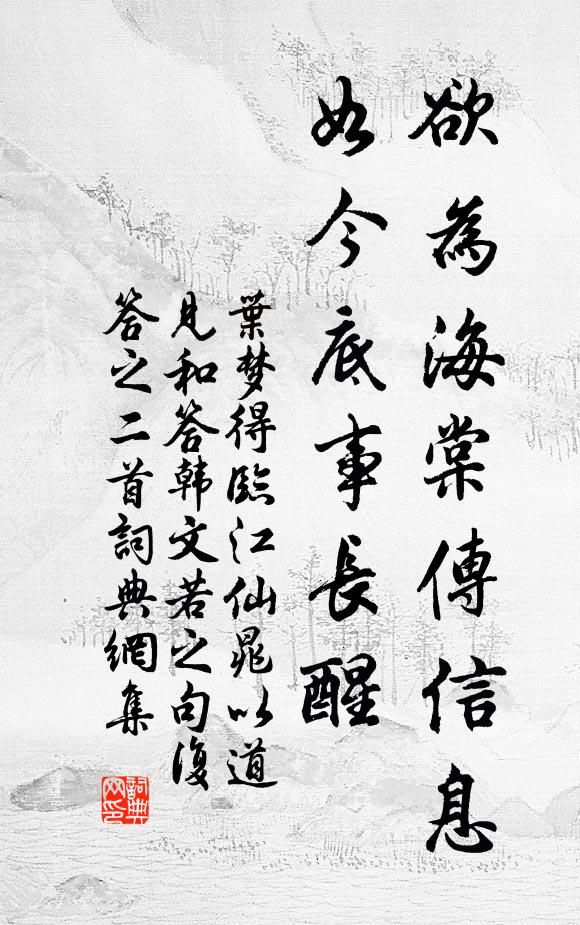 欲為海棠傳信息
如今底事長醒
葉梦得臨江仙晁以道
見和答韓文若之句復
答之二首詞典網集
詞典網印